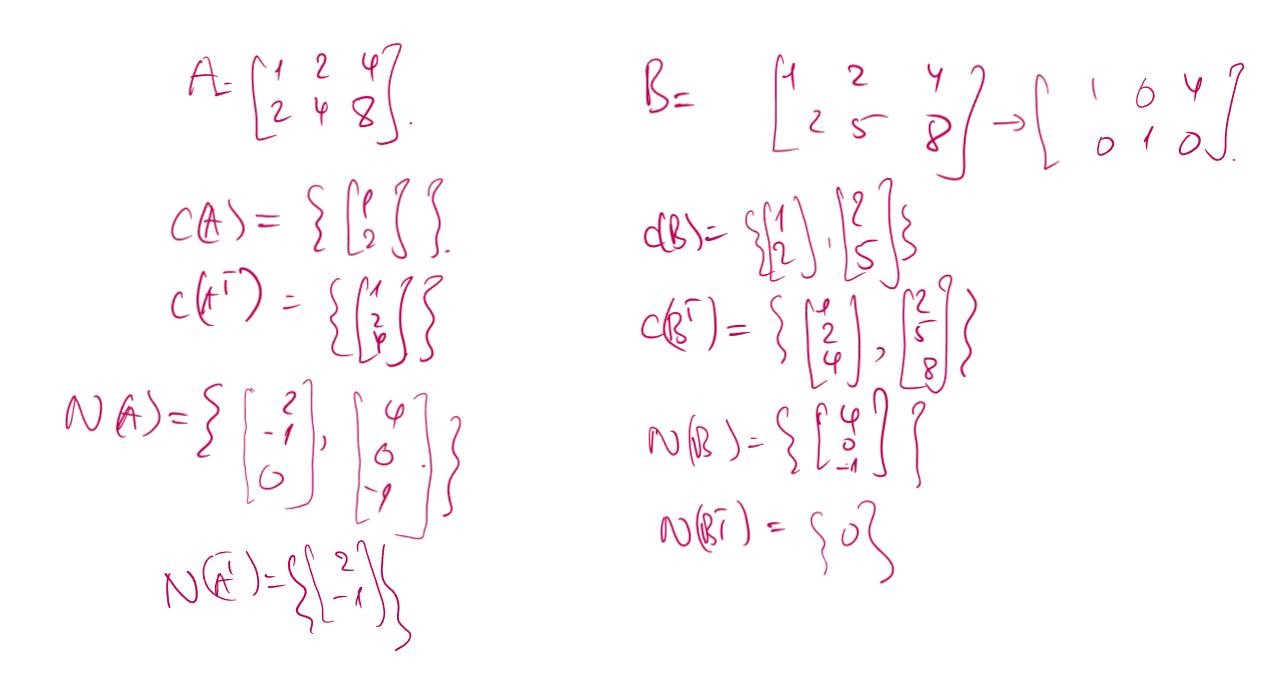 A = [1 2 4; 2 4 8].
C(A) = {[1; 2]}.
C(Aᵀ) = {[1; 2; 4]}
N(A) = {[2; -1; 0], [4; 0; -1]}
N(Aᵀ) = {[2; -1]}
B = [1 2 4; 2 5 8] → [1 0 4; 0 1 0].
C(B) = {[1; 2], [2; 5]}
C(Bᵀ) = {[1; 2; 4], [2; 5; 8]}
N(B) = {[4; 0; -1]}
N(Bᵀ) = {0}